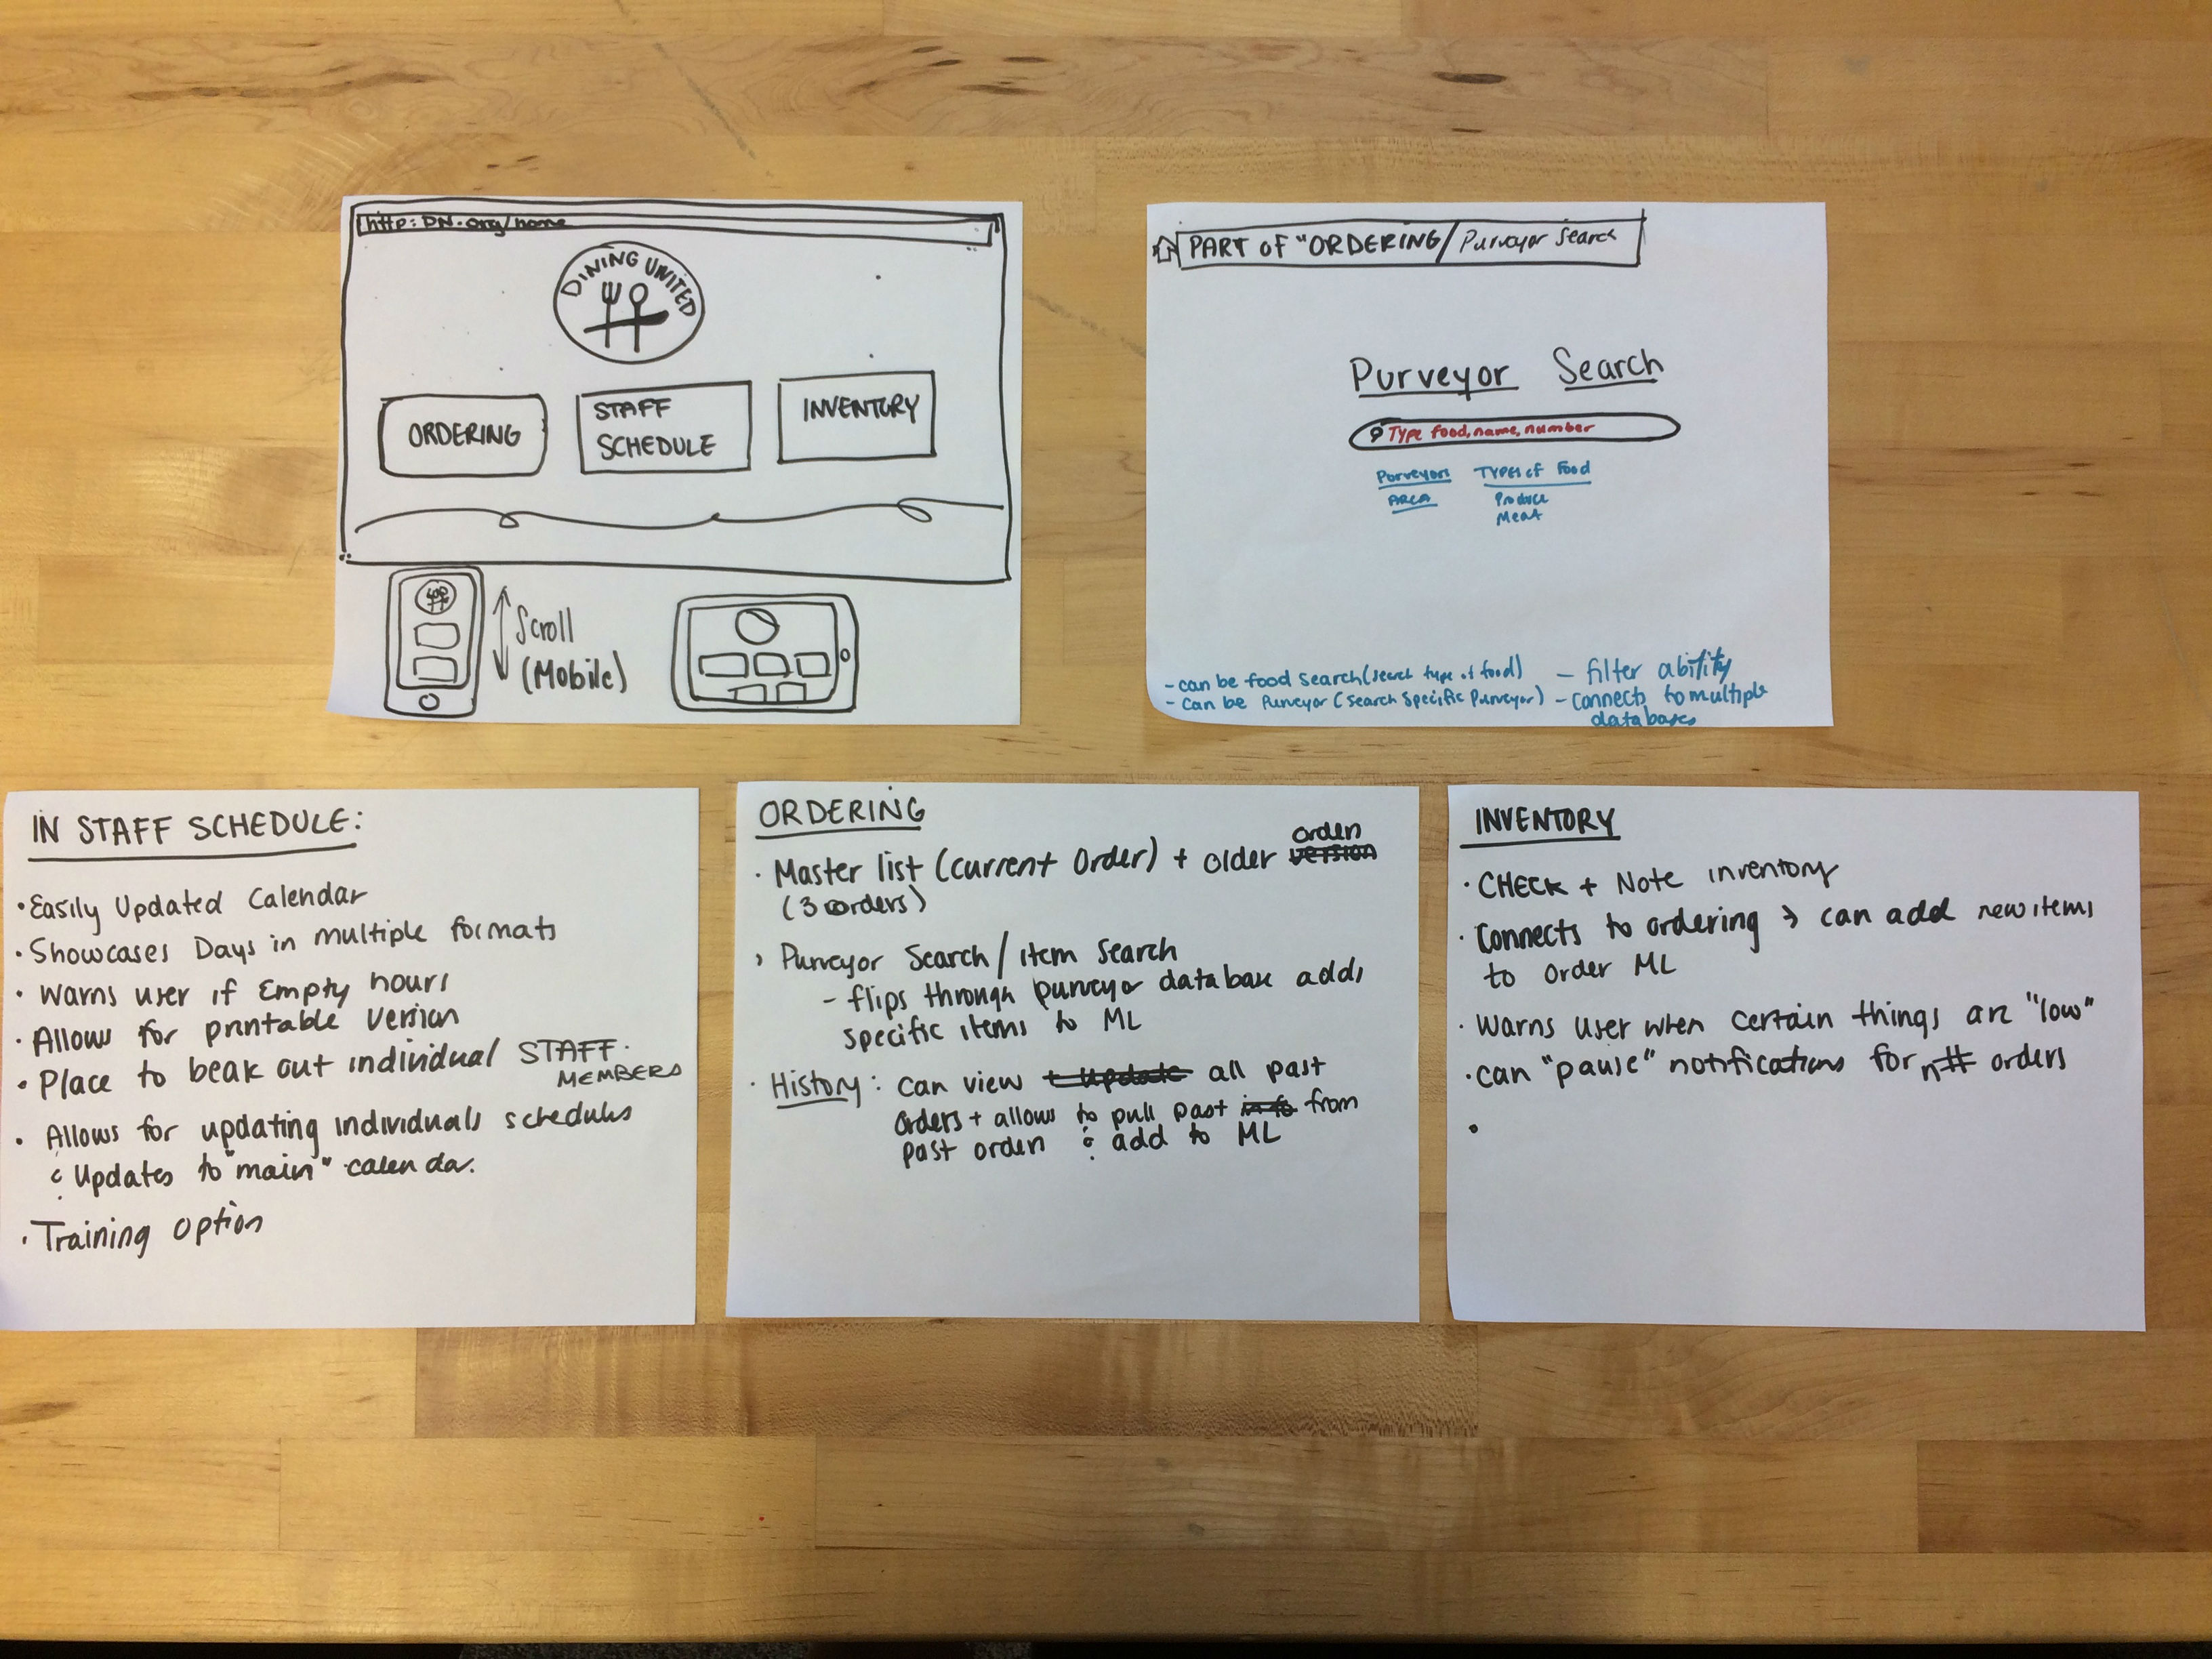 http:DN.org/home
DINING UNITED
ORDERING
STAFF
SCHEDULE
INVENTORY
Scroll
(Mobile)
PART OF "ORDERING/Purveyor Search
Purveyor Search
Type food, name, number
Purveyors Types of Food
AREA Produce
Meat
- can be food search (search type of food)
- can be Purveyor (search specific Purveyor)
- filter ability
- connects to multiple
databases
IN STAFF SCHEDULE:
• Easily Updated Calendar
• Showcases Days in multiple formats
• Warns user if Empty hours
• Allows for printable version
• Place to beak out individual STAFF
MEMBERS
• Allows for updating individuals schedules
& Updates to "main" calendar.
• Training option
ORDERING
• Master list (current Order) + older orders
(3 orders)
• Purveyor Search/item Search
- flips through purveyor database adds
specific items to ML
• History: can view all past
orders + allows to pull past from
past orders & add to ML
INVENTORY
• CHECK + Note inventory
• Connects to ordering → can add new items
to order ML
• Warns user when certain things are "low"
• can "pause" notifications for n# orders
•